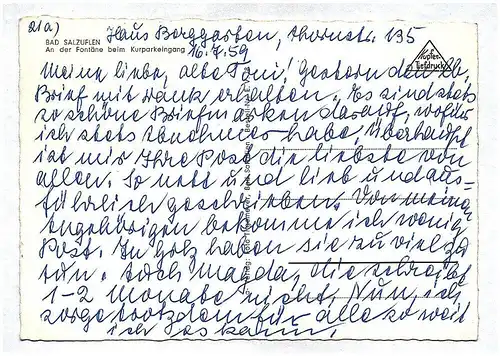 21a) Haus Berggarten, Thornstr. 135
BAD SALZUFLEN
An der Fontäne beim Kurparkeingang
16.7.59
Kupfer-
Tiefdruck
Meine liebe, alte Toni! Gestern den lb.
Brief mit Dank erhalten. Es sind stets
so schöne Briefmarken darauf, wofür
ich stets Abnehmer habe, überhaupt
ist mir Ihre Post die liebste von
allen. So nett und lieb und aus-
führlich geschrieben. Von meinen
Angehörigen bekomme ich wenig
Post. In Holz haben sie zu viel zu
tun. Auch Magda, die schreibt
1-2 Monate nicht. Nun, ich
sorge trotzdem für alle so weit
ich es kann.